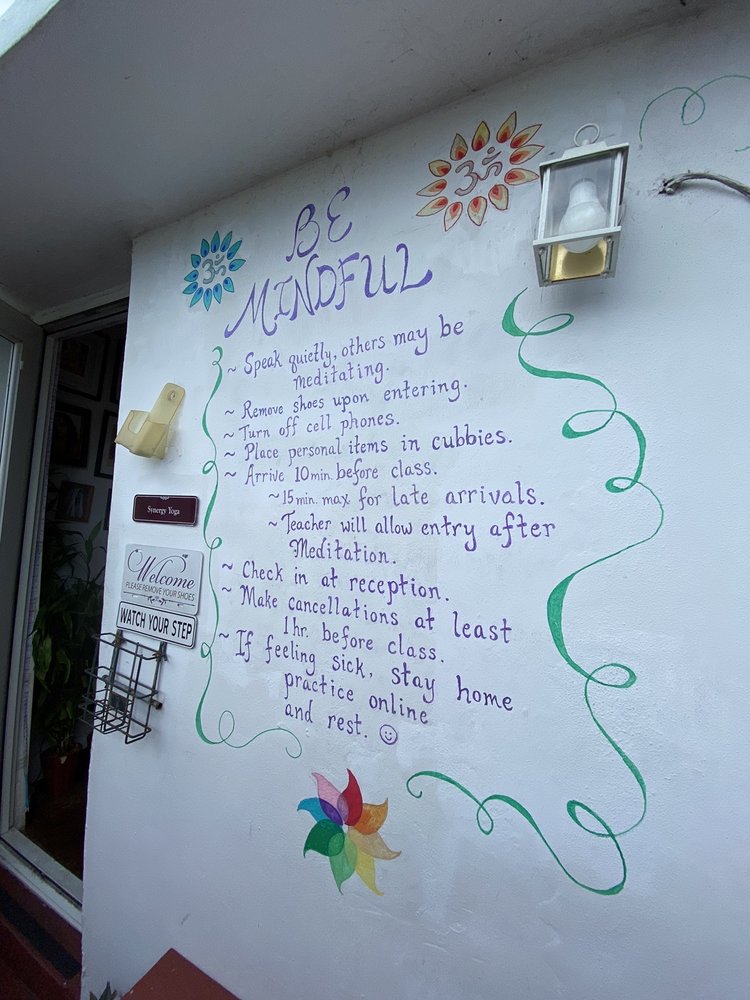 ॐ
ॐ
BE
MINDFUL
~ Speak quietly, others may be
meditating.
~ Remove shoes upon entering.
~ Turn off cell phones.
~ Place personal items in cubbies.
~ Arrive 10 min. before class.
~ 15 min. max for late arrivals.
~ Teacher will allow entry after
Meditation.
~ Check in at reception.
~ Make cancellations at least
1 hr. before class.
~ If feeling sick, stay home
practice online
and rest. ☺
Synergy Yoga
Welcome
PLEASE REMOVE YOUR SHOES
WATCH YOUR STEP